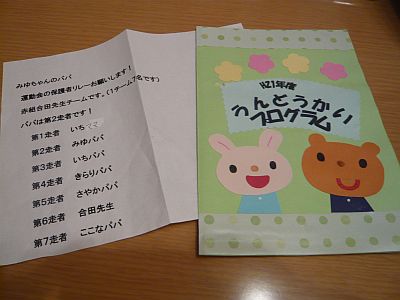 みゆちゃんのパパ
運動会の保護者リレーお願いします！
赤組合田先生チームです。（1チーム7名です）
パパは第2走者です！
第1走者 いちママ
第2走者 みゆパパ
第3走者 いちパパ
第4走者 きらりパパ
第5走者 さやかパパ
第6走者 合田先生
第7走者 ここなパパ
H21年度
うんどうかい
プログラム